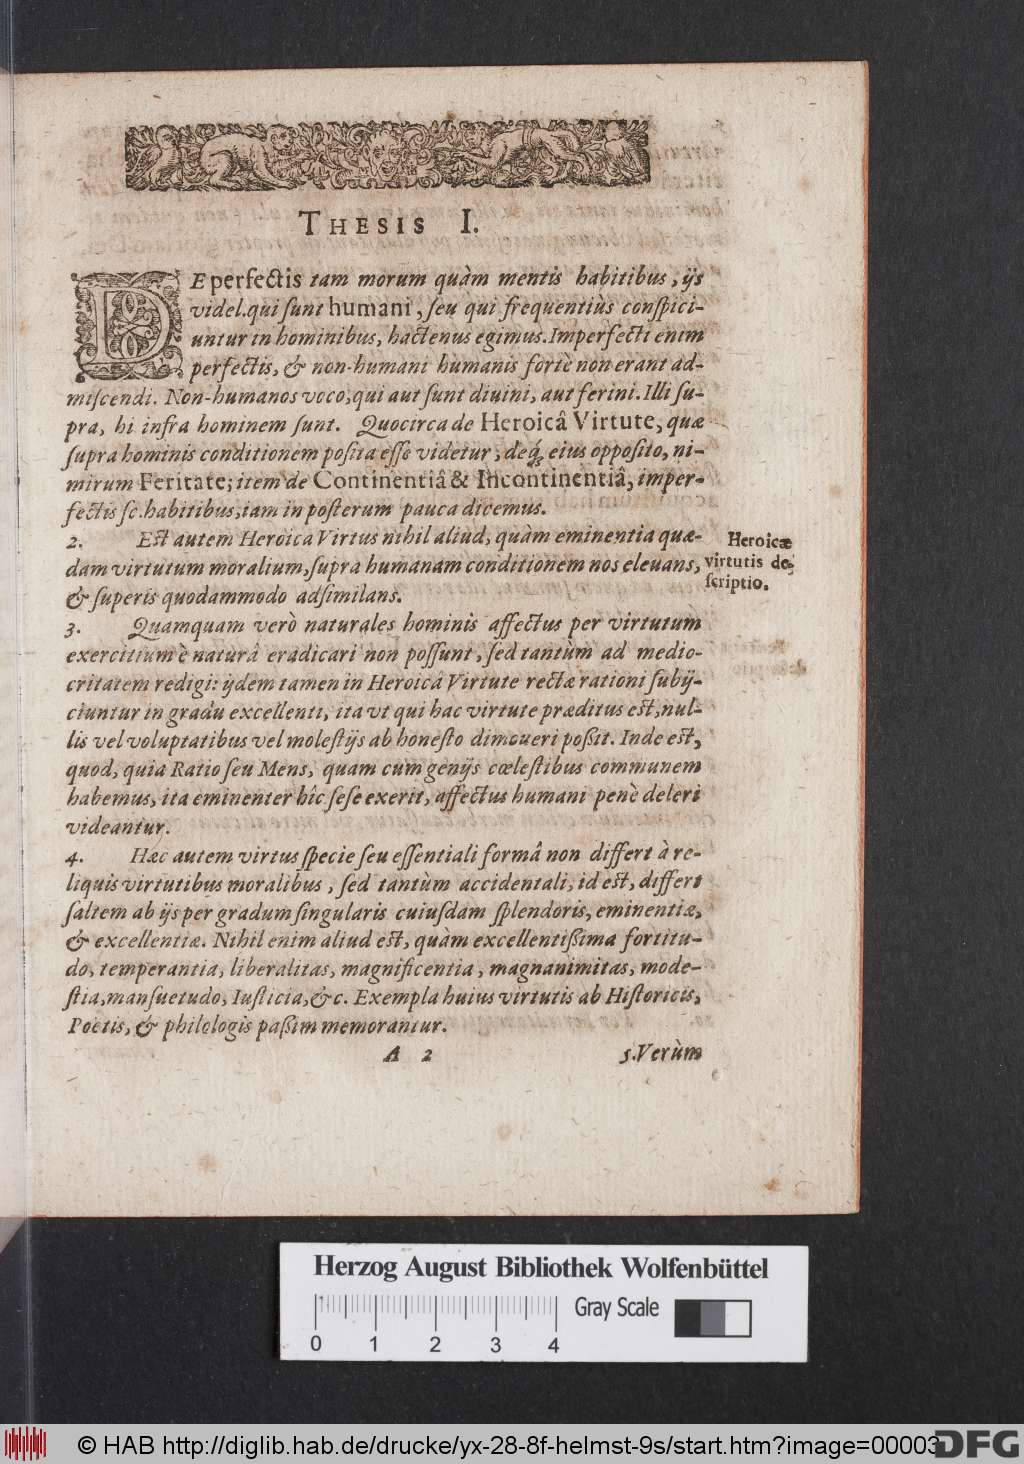 THESIS I.
DE perfectis tam morum quàm mentis habitibus, ijs
videl. qui ſunt humani, ſeu qui frequentiùs conſpici-
untur in hominibus, hactenus egimus. Imperfecti enim
perfectis, & non-humani humanis fortè non erant ad-
miſcendi. Non-humanos voco, qui aut ſunt diuini, aut ferini. Illi ſu-
pra, hi infra hominem ſunt. Quocirca de Heroicâ Virtute, quæ
ſupra hominis conditionem poſita eſſe videtur, deq́; eius oppoſito, ni-
mirum Feritate; item de Continentiâ & Incontinentiâ, imper-
fectis ſc. habitibus, iam in poſterum pauca dicemus.
2. Eſt autem Heroica Virtus nihil aliud, quàm eminentia quæ-
dam virtutum moralium, ſupra humanam conditionem nos eleuans,
& ſuperis quodammodo adſimilans.
Heroicæ
virtutis de-
ſcriptio.
3. Quamquam verò naturales hominis affectus per virtutum
exercitium è naturâ eradicari non poſſunt, ſed tantùm ad medio-
critatem redigi: ijdem tamen in Heroicâ Virtute rectæ rationi ſubij-
ciuntur in gradu excellenti, ita vt qui hac virtute præditus eſt, nul-
lis vel voluptatibus vel moleſtijs ab honeſto dimoueri poßit. Inde eſt,
quod, quia Ratio ſeu Mens, quam cum genijs cœleſtibus communem
habemus, ita eminenter hîc ſeſe exerit, affectus humani penè deleri
videantur.
4. Hæc autem virtus ſpecie ſeu eſſentiali formâ non differt à re-
liquis virtutibus moralibus, ſed tantùm accidentali, id eſt, differt
ſaltem ab ijs per gradum ſingularis cuiuſdam ſplendoris, eminentiæ,
& excellentiæ. Nihil enim aliud eſt, quàm excellentißima fortitu-
do, temperantia, liberalitas, magnificentia, magnanimitas, mode-
ſtia, manſuetudo, Iuſticia, &c. Exempla huius virtutis ab Hiſtoricis,
Poëtis, & philologis paßim memorantur.
A 2 5. Verùm
Herzog August Bibliothek Wolfenbüttel
Gray Scale
0 1 2 3 4
© HAB http://diglib.hab.de/drucke/yx-28-8f-helmst-9s/start.htm?image=00003
DFG